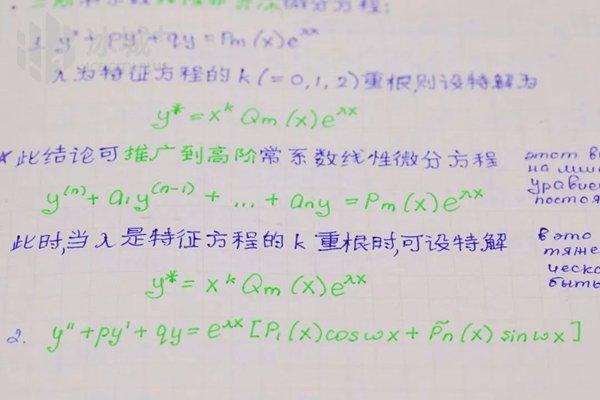 二阶常系数线性非齐次微分方程:
1. y″+py′+qy=Pm(x)e^λx
λ为特征方程的k(=0,1,2)重根,则设特解为
y*=x^k Qm(x)e^λx
*此结论可推广到高阶常系数线性微分方程
y^(n)+a₁y^(n-1)+...+any=Pm(x)e^λx
此时,当λ是特征方程的k重根时,可设特解
y*=x^k Qm(x)e^λx
2. y″+py′+qy=e^λx[Pl(x)cosωx+P̃n(x)sinωx]
этот
на
уравне
постоя
в это
тяже
ческо
быть